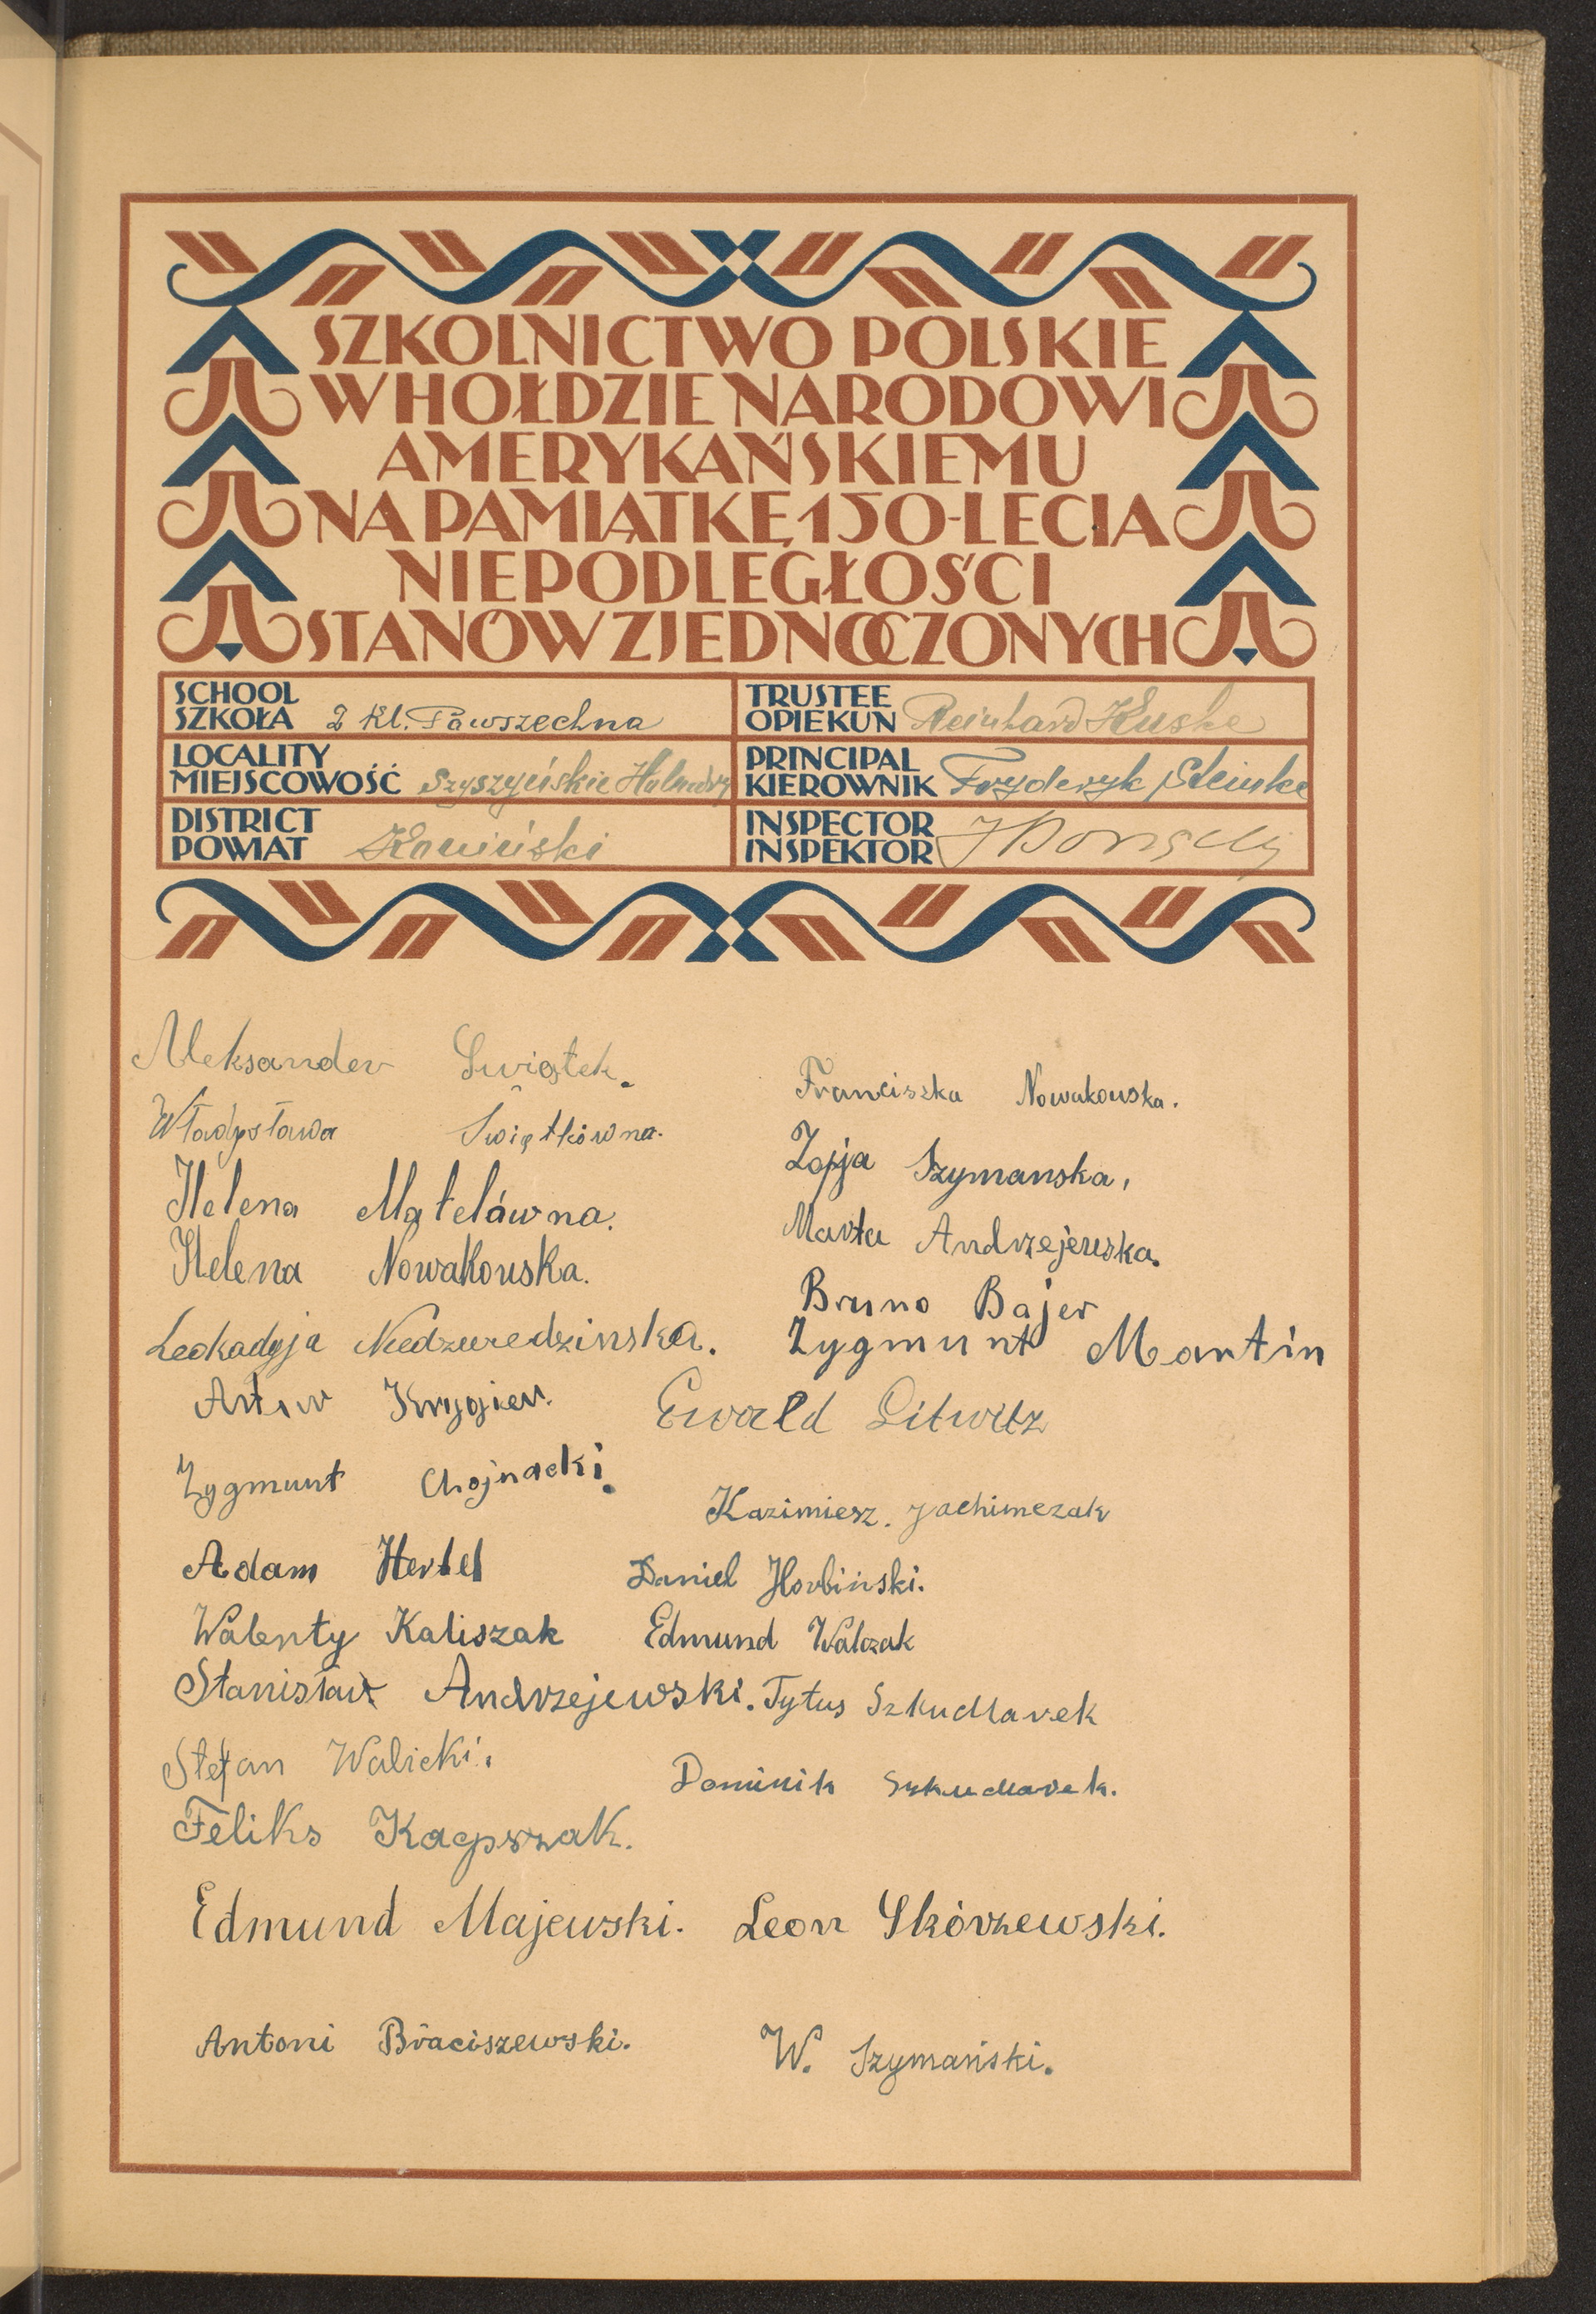 SZKOLNICTWO POLSKIE
W HOŁDZIE NARODOWI
AMERYKAŃSKIEMU
NA PAMIĄTKĘ 150-LECIA
NIEPODLEGŁOŚCI
STANÓW ZJEDNOCZONYCH
SCHOOL
SZKOŁA 2 Kl. Pawszechna
TRUSTEE
OPIEKUN Reinhard Kuske
LOCALITY
MIEJSCOWOŚĆ Szyszyńskie Holendry
PRINCIPAL
KIEROWNIK Fryderyk Steinke
DISTRICT
POWIAT Koniński
INSPECTOR
INSPEKTOR
Aleksander Świątek.
Władysława Świątkówna.
Helena Mątelówna.
Helena Nowakowska.
Leokadyja Niedzwiedzinska.
Artur Krygier.
Zygmunt Chojnacki.
Adam Hertel
Walenty Kaliszak
Stanisław Andrzejewski.
Stefan Walicki.
Feliks Kacpszak.
Edmund Majewski.
Antoni Braciszewski.
Franciszka Nowakowska.
Zofja Szymanska,
Marta Andrzejewska.
Bruno Bajer
Zygmunt Mantin
Ewald Litwitz
Kazimiesz. Jachimczak
Daniel Horbiński.
Edmund Walczak
Tytus Szkudlarek
Dominik Szkudlarek.
Leon Skórzewski.
W. Szymański.